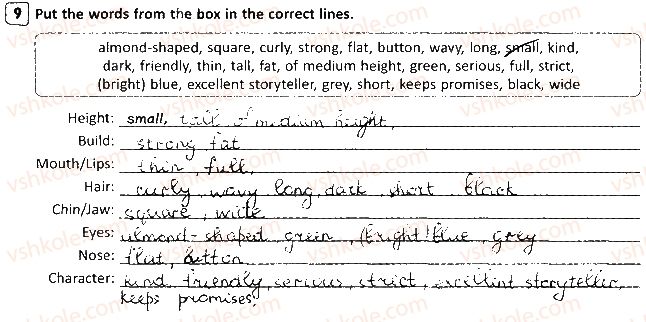 9 Put the words from the box in the correct lines.
almond-shaped, square, curly, strong, flat, button, wavy, long, small, kind,
dark, friendly, thin, tall, fat, of medium height, green, serious, full, strict,
(bright) blue, excellent storyteller, grey, short, keeps promises, black, wide
Height: small, tall of medium height,
Build: strong fat
Mouth/Lips: thin, full,
Hair: curly, wavy long, dark, short, black
Chin/Jaw: square, wide
Eyes: almond-shaped, green, (bright) blue, grey
Nose: flat, button
Character: kind, friendly, serious, strict, excillint storyteller,
keeps promises.
vshkole.com